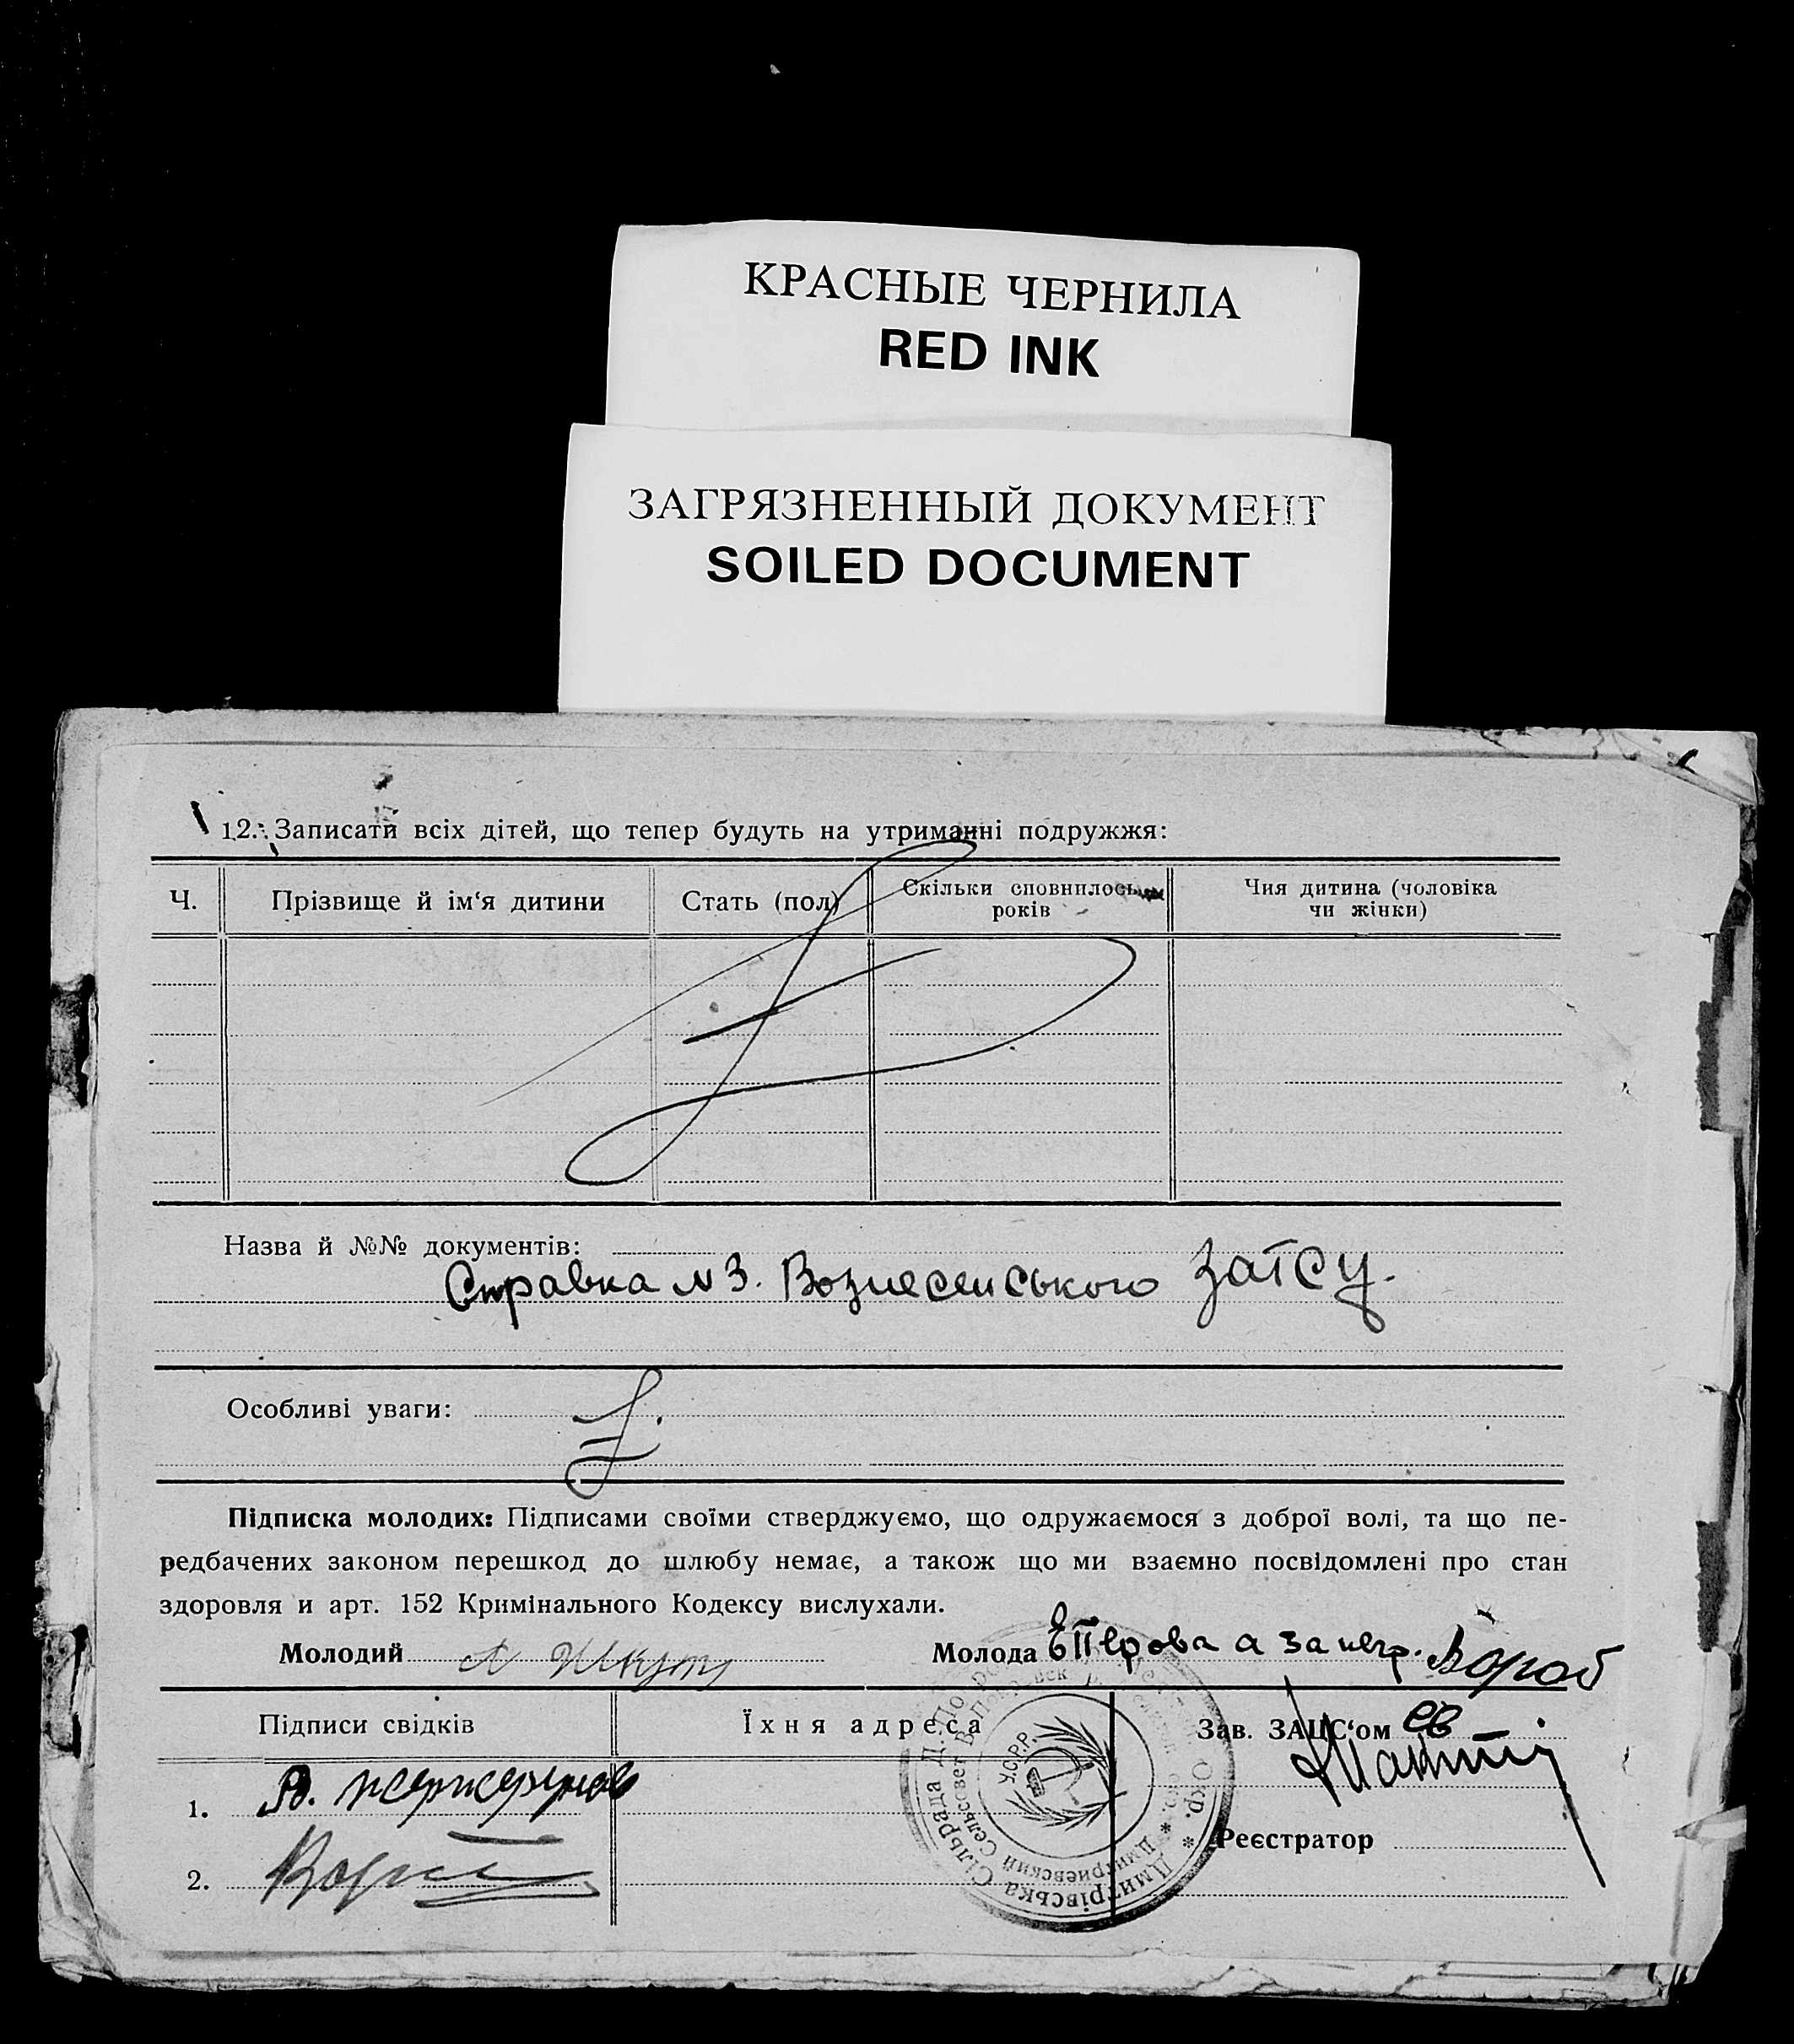 КРАСНЫЕ ЧЕРНИЛА
RED INK
ЗАГРЯЗНЕННЫЙ ДОКУМЕНТ
SOILED DOCUMENT
12. Записати всіх дітей, що тепер будуть на утриманні подружжя:
Ч.
Прізвище й ім‘я дитини
Стать (пол)
Скільки сповнилось
років
Чия дитина (чоловіка
чи жінки)
Назва й №№ документів:
Справка №3. Вознесенського ЗАГСу.
Особливі уваги:
Підписка молодих: Підписами своїми стверджуємо, що одружаємося з доброї волі, та що пе-
редбачених законом перешкод до шлюбу немає, а також що ми взаємно посвідомлені про стан
здоровля и арт. 152 Кримінального Кодексу вислухали.
Молодий
Молода Е Перова а за негр. Вороб
Підписи свідків
Їхня адреса
Зав. ЗАГС‘ом ев
1.
Реєстратор
2.
Дмитрівська Сільрада
Дмитриевский Сельсовет
У.С.Р.Р.
Окр.